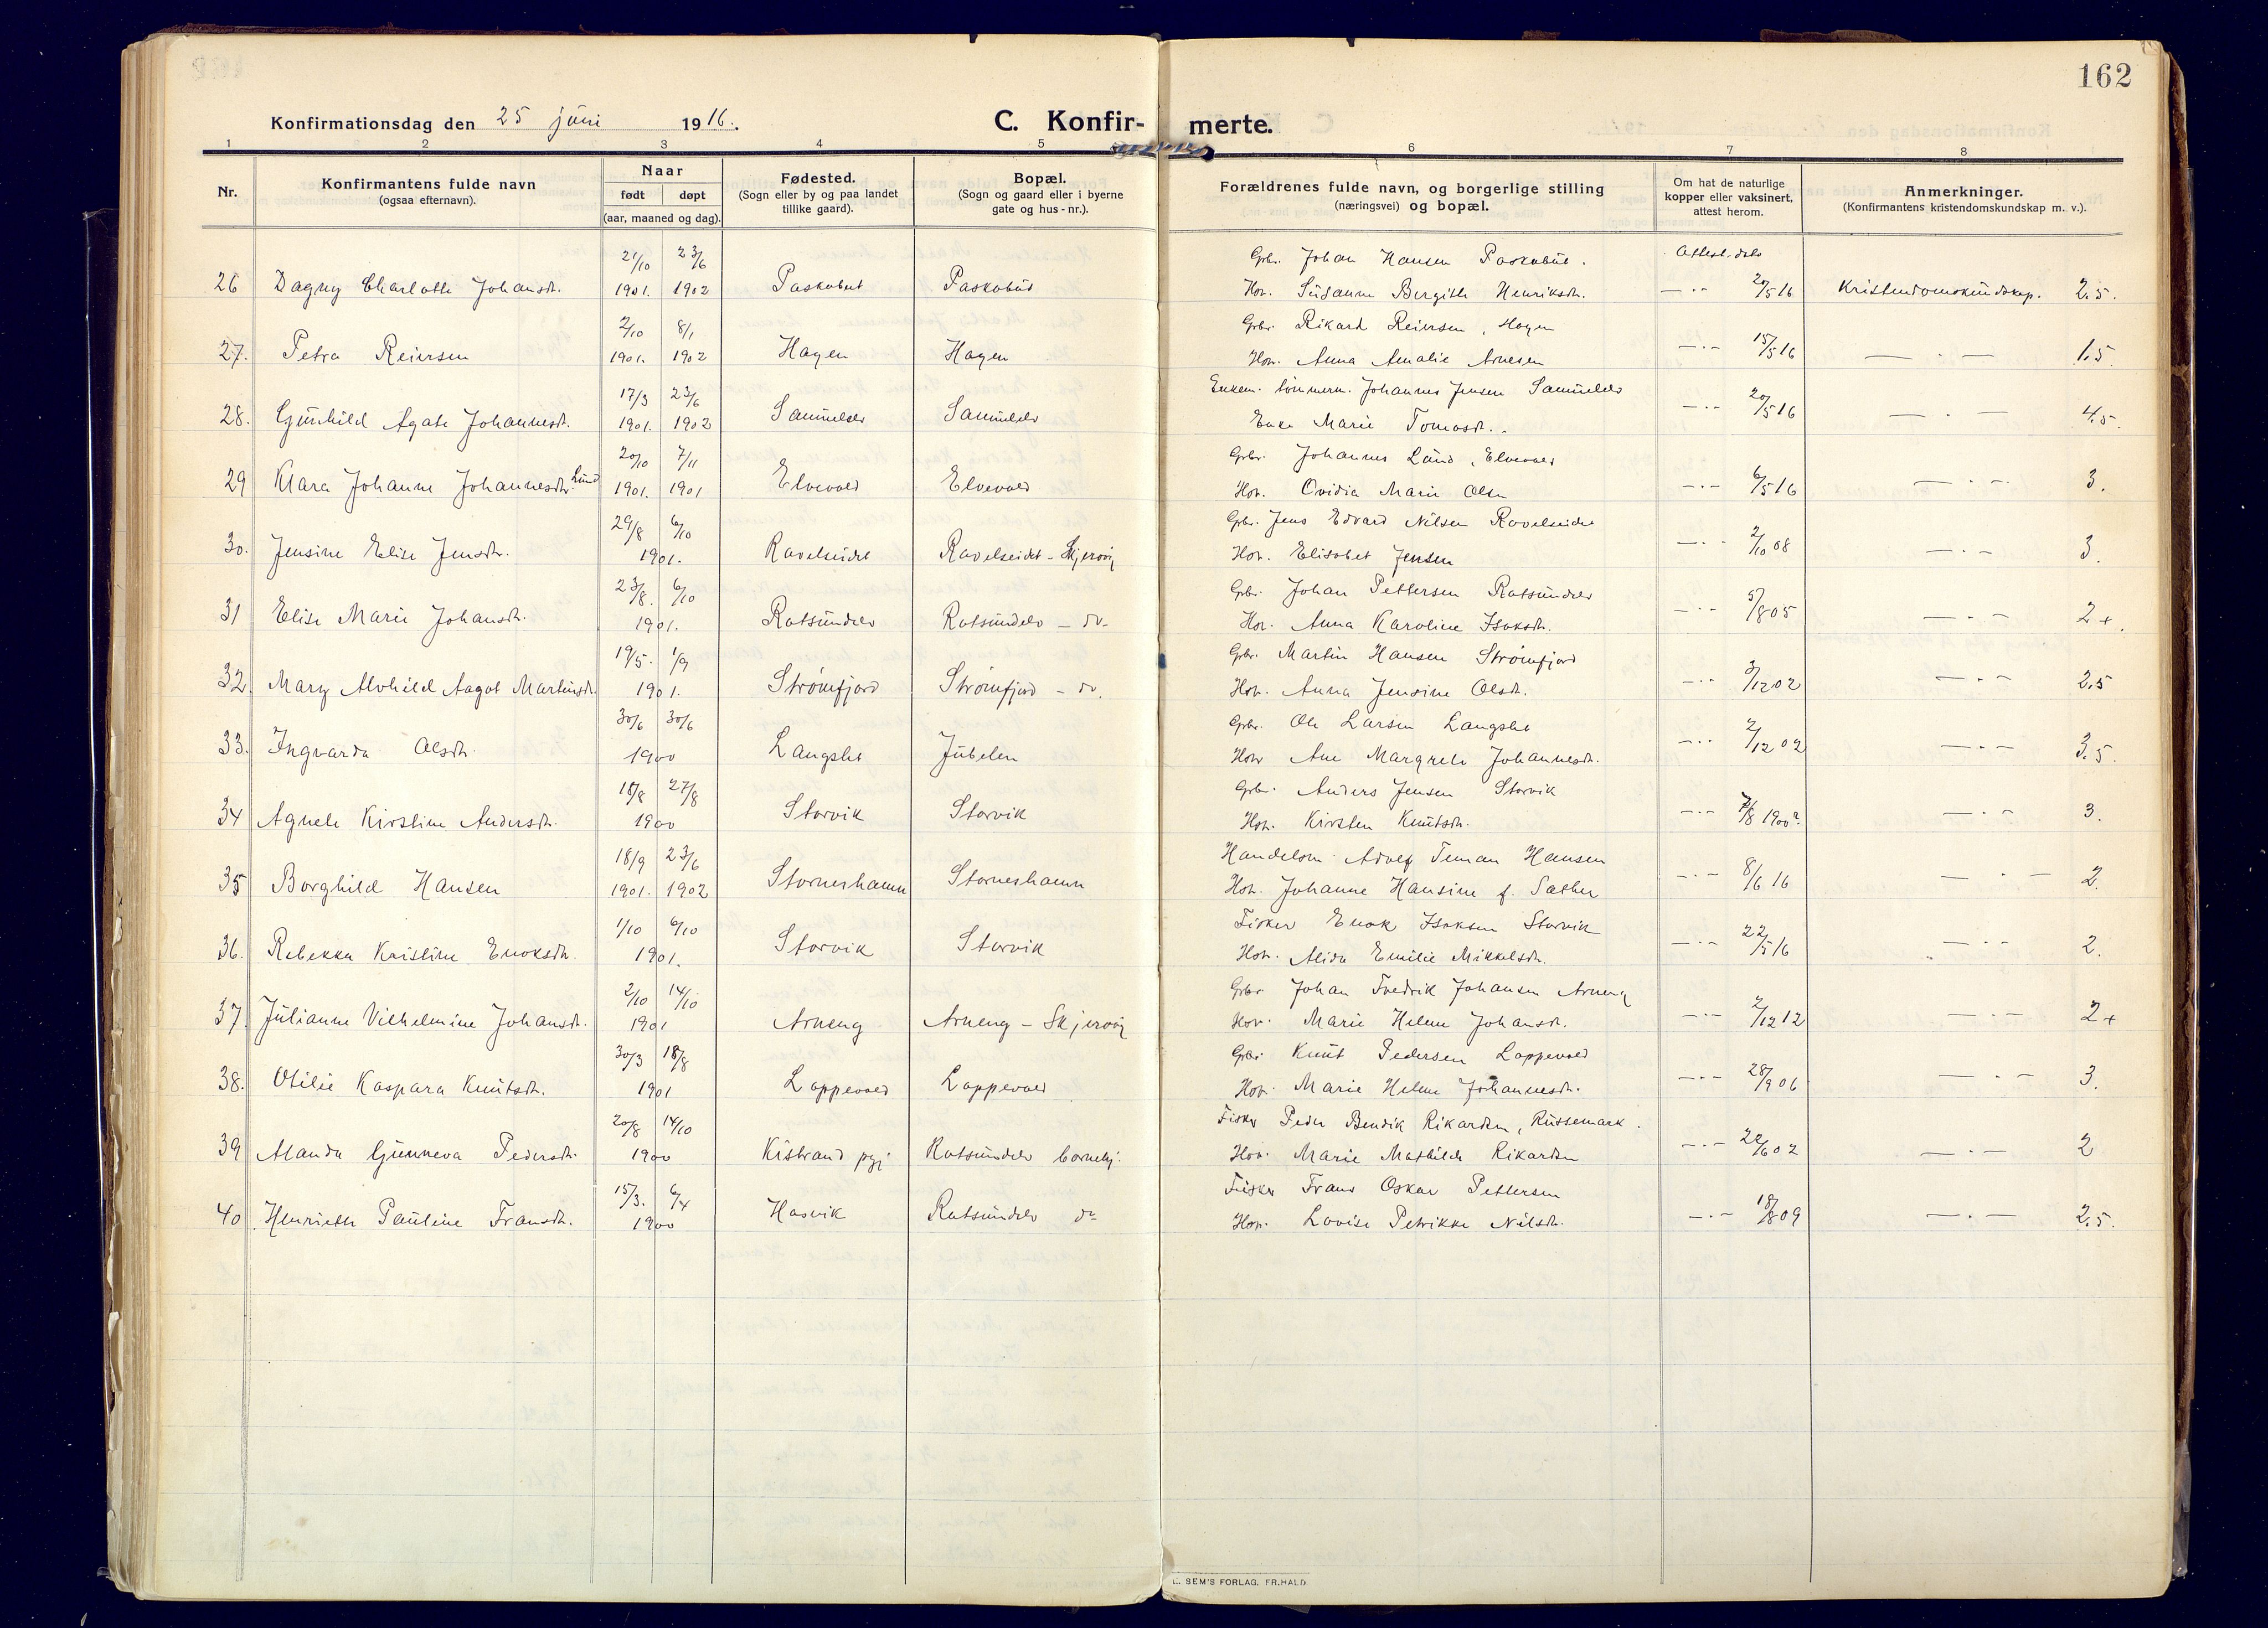 162
Konfirmationsdag den 25 juni 1916.
C. Konfir-merte.
1 2 3 4 5 6 7 8
Nr.
Konfirmantens fulde navn
(ogsaa efternavn).
Naar
født døpt
(aar, maaned og dag).
Fødested.
(Sogn eller by og paa landet
tillike gaard).
Bopæl.
(Sogn og gaard eller i byerne
gate og hus-nr.).
Forældrenes fulde navn, og borgerlige stilling
(næringsvei) og bopæl.
Om hat de naturlige
kopper eller vaksinert,
attest herom.
Anmerkninger.
(Konfirmantens kristendomskundskap m. v.).
21/10 23/6 Grbr. Johan Hansen Paskabut. Attest. dat.
26 Dagny Charlotte Johansdr. 1901. 1902 Paskabut Paskabut Hor. Susanne Bergitte Henriksdr. —·— 20/5 16 Kristendomskundskap. 2.5.
2/10 8/1 Grbr. Rikard Reiersen, Hagen
27. Petra Reiersen 1901. 1902 Hagen Hagen Hor. Anna Amalie Arnesen —·— 15/5 16 —·— 1.5
17/3 23/6 Enkem. tømmerm. Johannes Jensen Samuelelv
28. Gunhild Agate Johannesdr. 1901. 1902 Samuelelv Samuelelv Enke Marie Tomasdr. —·— 20/5 16 —·— 4.5.
20/10 7/11 Grbr. Johannes Lund, Elvevold
29 Klara Johanne Johannesdr. Lund 1901. 1901 Elvevold Elvevold Hor. Ovidia Marie Olsen —·— 6/5 16 —·— 3.
29/8 6/10 Grbr. Jens Edvard Nilsen Ravelseidet
30. Jensine Elise Jensdr. 1901. Ravelseidet Ravelseidet - Skjervøy Hor. Elisabet Jensen —·— 2/10 08 —·— 3.
23/8. 6/10 Grbr. Johan Pettersen Rotsundelv
31 Elise Marie Johansdr. 1901. Rotsundelv Rotsundelv - do. Hor. Anna Karoline Isaksdr. —·— 5/8 05 —·— 2+.
19/5. 1/9 Grbr. Martin Hansen Strømfjord
32. Mary Alvhild Aagot Martinsdr. 1901. Strømfjord Strømfjord - do. Hor. Anna Jensine Olsdr. —·— 3/12 02 —·— 2.5
30/6 30/6 Grbr. Ole Larsen Langslet
33. Ingvarda Olsdr. 1900 Langslet Jubelen Hor. Ane Margrete Johannesdr. —·— 2/12 02 —·— 3.5.
18/8 27/8 Grbr. Anders Jensen Storvik
34 Agnete Kirstine Andersdr. 1900 Storvik Storvik Hor. Kirsten Knutsdr. —·— 7/8 1900? —·— 3.
18/9 23/6 Handelsm. Adolf Teman Hansen
35 Borghild Hansen 1901. 1902 Storneshamn Storneshamn Hor. Johanne Hansine f. Sæther —·— 8/6 16 —·— 2.
1/10 6/10 Fisker Enok Isaksen Storvik
36. Rebekka Kristine Enoksdr. 1901. Storvik Storvik Hor. Alida Emilie Mikkelsdr. —·— 22/5 16 —·— 2.
2/10 14/10 Grbr. Johan Fredrik Johansen Arneng
37. Julianne Vilhelmine Johansdr. 1901 Arneng Arneng - Skjervøy Hor. Marie Helene Johansdr. —·— 2/12 12 —·— 2+
30/3 18/8 Grbr. Knut Pedersen Loppevold
38. Otilie Kaspara Knutsdr. 1901 Loppevold Loppevold Hor. Marie Helene Johannesdr. —·— 28/9 06 —·— 3.
20/8 14/10 Fisker Peder Bendik Rikardsen, Russemark.
39 Alanda Gunneva Pedersdr. 1900 Kistrand pgj Rotsundelv Hor. Marie Mathilde Rikardsen —·— 22/6 02 —·— 2
15/3. 6/4 Fisker Frans Oskar Pettersen
40. Henriette Pauline Fransdr. 1900 Hasvik Rotsundelv do Hor. Lovise Petrikke Nilsdr. —·— 18/8 09 —·— 2.5.
SEM'S FORLAG, FR.HALD